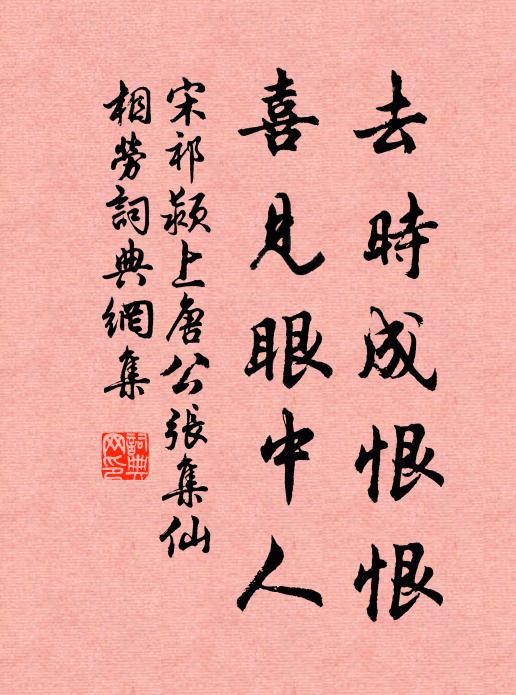 去時成恨恨
喜見眼中人
宋祁潁上唐公張集仙
相勞詞典網集
詞典網印